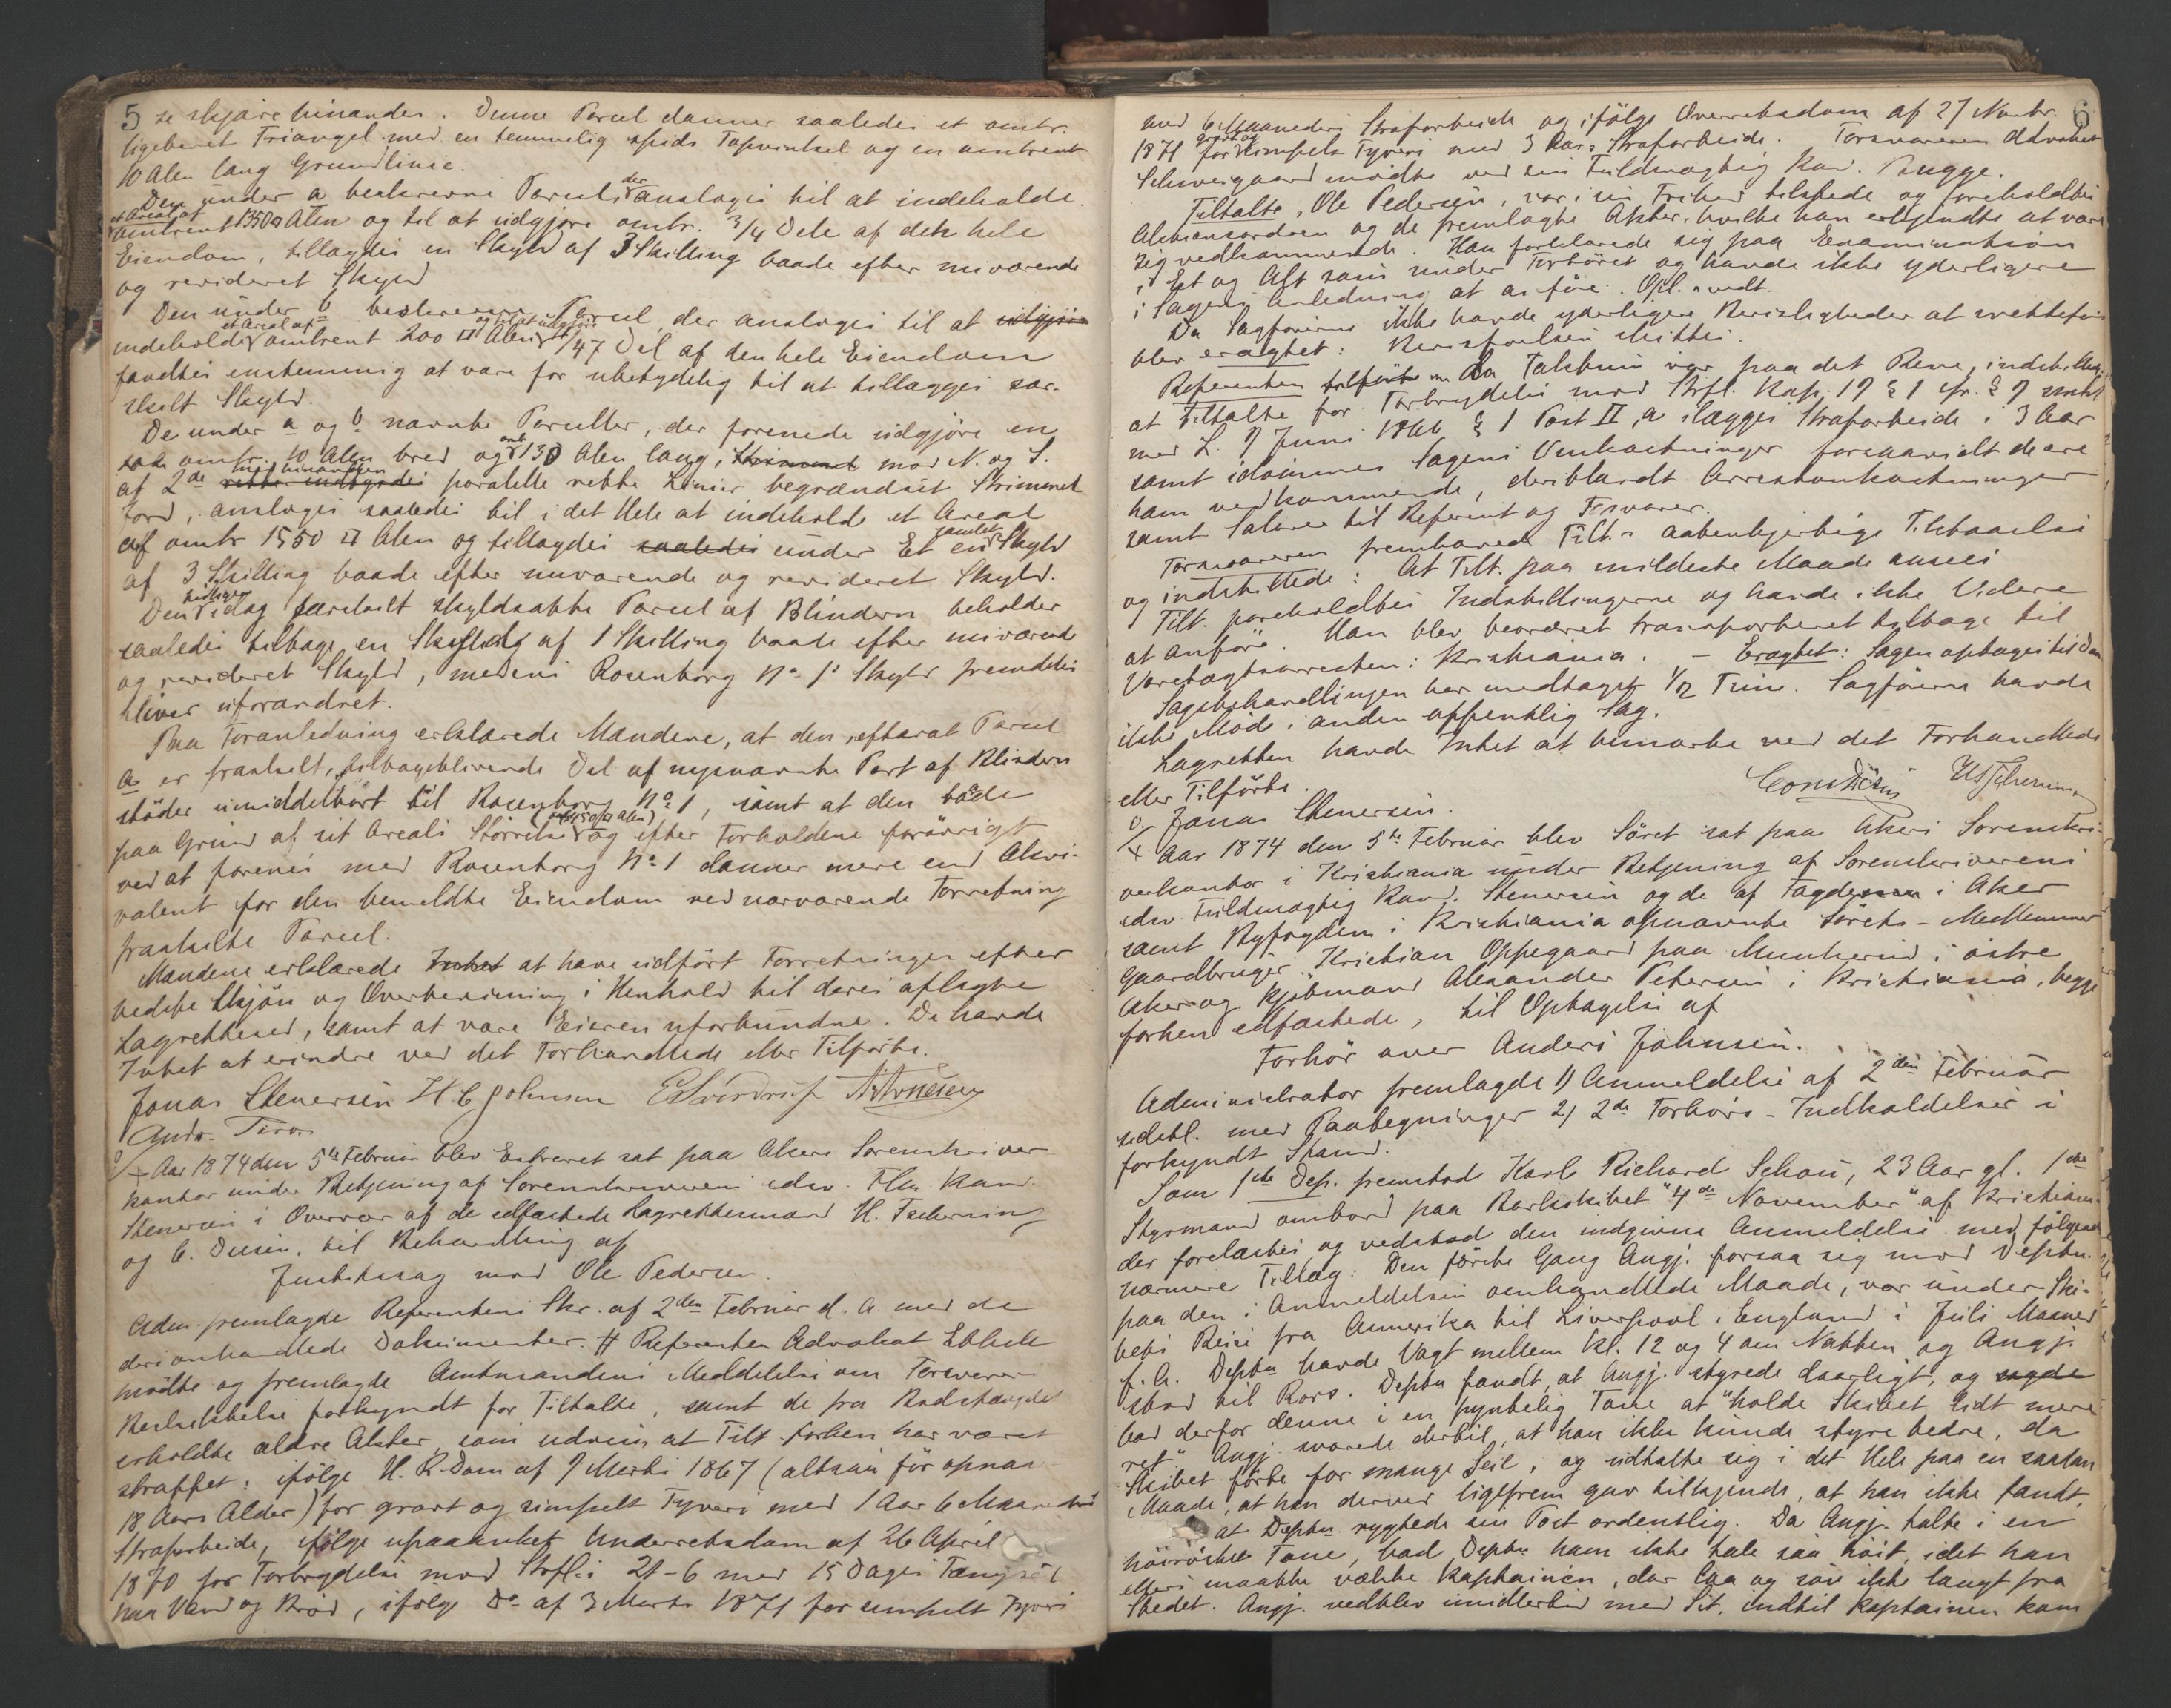 5
se skjære hinanden. Denne Parcel danner saaledes et omtr.
ligebenet Triangel med en temmelig spids Topvinkel og en omtrent
10 Alen lang Grundlinie.
Den under a beskrevne Parcel, der ansloges til at indeholde
et Areal af omtrent 1350 □ Alen og til at udgjøre omtr. 3/4 Dele af den hele
Eiendom, tillagdes en Skyld af 3 Skilling baade efter nuværende
og revideret Skyld
Den under b beskrevne Parcel, der ansloges til at udgjøre
indeholde et Areal af omtrent 200 □ Alen og at udgjøre 1/47 Del af den hele Eiendom
fandtes enstemmig at være for ubetydelig til at tillægges sær-
skilt Skyld.
De under a og b nævnte Parceller, der forenede udgjøre en
omtr. 10 Alen bred og omtr. 130 Alen lang, Strimmel mod N. og S.
af 2de rette indbyrdes med hinanden paralelle rette Linier begrændset Strimmel
Jord, ansloges saaledes til i det Hele at indeholde et Areal
af omtr 1550 □ Alen og tillagdes saaledes under Et en samlet Skyld
af 3 Skilling baade efter nuværende og revideret Skyld.
Den idag særskilt skyldsatte Parcel af Blindern beholder
saaledes tilbage en Skyld af 1 Skilling baade efter nuværende
og revideret Skyld, medens Rosenborg No 1s Skyld fremdeles
bliver uforandret.
Paa Foranledning erklærede Mændene, at den, efterat Parcel
a er fraskilt, tilbageblivende Del af nysnævnte Part af Blindern
støder umiddelbart til Rosenborg No 1, samt at den både
paa Grund af sit Areals Størrelse og efter Forholdene forøvrigt
ved at forenes med Rosenborg No 1 danner mere end Ækvi-
valent for den bemeldte Eiendom ved nærværende Forretning
fraskilte Parcel.
Mændene erklærede Intet at have udført Forretningen efter
bedste Skjøn og Overbevisning i Henhold til deres aflagte
Lagrettesed, samt at være Eieren uforbundne. De havde
Intet at erindre ved det Forhandlede eller Tilførte.
Jonas Stenersen H C Johnsen
Aar 1874 den 5te Februar blev Extraret sat paa Akers Sorenskriver
kontor under Betjening af Sorenskriverens edsv. Flm. Kand.
Stenersen i Overvær af de edfæstede Lagrettesmænd H. Tscherning
og C. Diesen, til Behandling af
Justitssag mod Ole Pedersen.
Adm. fremlagde Referentens Skr. af 2den Februar d. A. med de
deri omhandlede Dokumenter. # Referenten Advokat
mødte og fremlagde Amtmandens Meddelelse om Forsvarer-
Beskikkelse forkyndt for Tiltalte, samt de fra Bodsfængslet
erholdte ældre Akter, som udvise, at Tilt. forhen har været
straffet: ifølge H. R. Dom af 7 Marts 1867 (altsaa før opnaaet
18 Aars Alder) for grovt og simpelt Tyveri med 1 Aar 6 Maaneders
Strafarbeide, ifølge upaaanket Underretsdom af 26 April
1870 for Forbrydelse mod Strfl.s 21-6 med 15 Dages Fængsel
paa Vand og Brød, ifølge Do af 3 Marts 1871 for simpelt Tyveri
6
med 6 Maaneders Strafarbeide og ifølge Overretsdom af 27 Novbr.
1871 for grovt og simpelt Tyveri med 3 Aars Strafarbeide. Forsvareren Advokat
Schweigaard mødte ved sin Fuldmægtig Kand. Bugge.
Tiltalte, Ole Pedersen, var i sin Frihed tilstede og foreholdtes
Aktionsordren og de fremlagte Akter, hvilke han erkjendte at være
sig vedkommende. Han forklarede sig paa Examination
i Et og Alt som under Forhøret og havde ikke yderligere
i Sagens Anledning at anføre. Opl. vedt.
Da Sagførerne ikke havde yderligere Bevisligheder at
blev eragtet: Bevisførelsen sluttet.
Referenten tilførte Da Talsbeviset var paa det Rene, indstilledes
at Tiltalte for Forbrydelse mod Strfl. Kap. 19 § 1 cfr. § 7 smhl
med L. 7 Juni 1866 § 1 Post II, a ilægges Strafarbeide i 3 Aar
samt idømmes Sagens Omkostninger forsaavidt de ere
ham vedkommende, deriblandt Arrestomkostninger
samt Salarer til Referent og Forsvarer.
Forsvareren fremhævede Tilt.s aabenhjertige Tilstaaelse
og indstillede: At Tilt. paa mildeste Maade ansees
Tilt. foreholdtes Indstillingerne og havde ikke Videre
at anføre. Han blev beordret transporteret tilbage til
Varetægtsarresten i Kristiania. - Eragtet: Sagen optages til Dom
Sagsbehandlingen har medtaget 1/2 Time. Sagførerne havde
ikke Møde i anden offentlig Sag.
Lagretten havde Intet at bemærke ved det Forhandlede
eller Tilførte.
Jonas Stenersen. Tscherning
Aar 1874 den 5te Februar blev Søret sat paa Akers Sorenskri-
verkontor i Kristiania under Betjening af Sorenskriverens
edsv Fuldmægtig Kand. Stenersen og de af Fogden i Aker
samt Byfogden i Kristiania opnævnte Sørets-Medlemmer
Gaardbruger Kristian Oppegaard paa Munkerud i østre
Aker og Kjøbmand Alexander Petersen i Kristiania, begge
forhen edfæstede, til Optagelse af
Forhør over Anders Johnsen.
Administrator fremlagde 1) Anmeldelse af 2den Februar
sidstl. med Paategninger 2) 2de Forhørs-Indkaldelser i
forkyndt Stand.
Som 1ste Dep. fremstod Karl Richard Schou, 23 Aar gl. 1ste
Styrmand ombord paa Barkskibet "4de November" af Kristiania
der forelæstes og vedstod den indgivne Anmeldelse med følgende
nærmere Tillæg: Den første Gang Angj. forsaa sig mod Deptn.
paa den i Anmeldelsen omhandlede Maade, var under Ski-
bets Reise fra Amerika til Liverpool i England i Juli Maaned
f. A. Deptn havde Vagt mellem Kl. 12 og 4 om Natten og Angj.
stod til Rors. Deptn fandt, at Angj. styrede daarligt, og sagde
bad derfor denne i en sømmelig Tone at "holde Skibet lidt mere
ret". Angj. svarede dertil, at han ikke kunde styre bedre, da
Skibet førte for mange Seil, og udtalte sig i det Hele paa en saadan
Maade, at han derved ligefrem gav tilkjende, at han ikke fandt,
at Deptn røgtede sin Post ordentlig. Da Angj. talte i en
høirøstet Tone, bad Deptn ham ikke tale saa høit, idet han
ellers maatte vække Kaptainen, der laa og sov ikke langt fra
Stedet. Angj. vedblev imidlertid med Sit, indtil Kaptainen kom